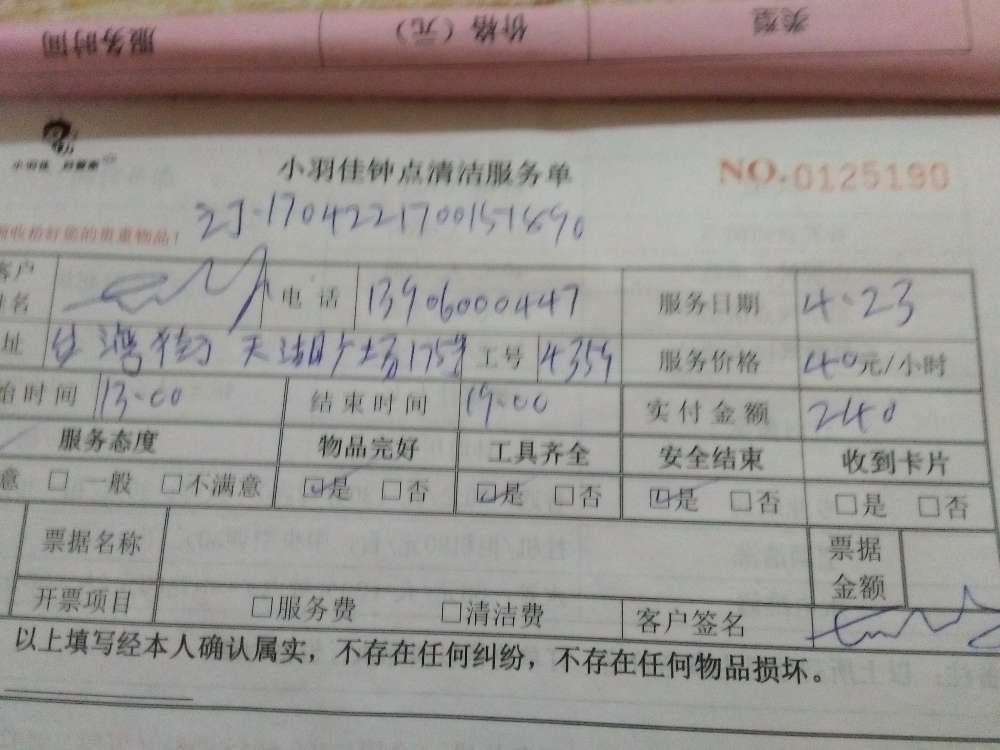 服务时间 价格（元） 类型
小羽佳
小羽佳钟点清洁服务单 NO.0125190
1704221700151890
收拾好您的贵重物品！
客户姓名 电话 13906000447 服务日期 4.23
址 175 工号 4359 服务价格 40元/小时
始时间 13:00 结束时间 19:00 实付金额 240
服务态度 物品完好 工具齐全 安全结束 收到卡片
意 □一般 □不满意 ☑是 □否 ☑是 □否 ☑是 □否 □是 □否
票据名称 票据金额
开票项目 □服务费 □清洁费 客户签名
以上填写经本人确认属实，不存在任何纠纷，不存在任何物品损坏。